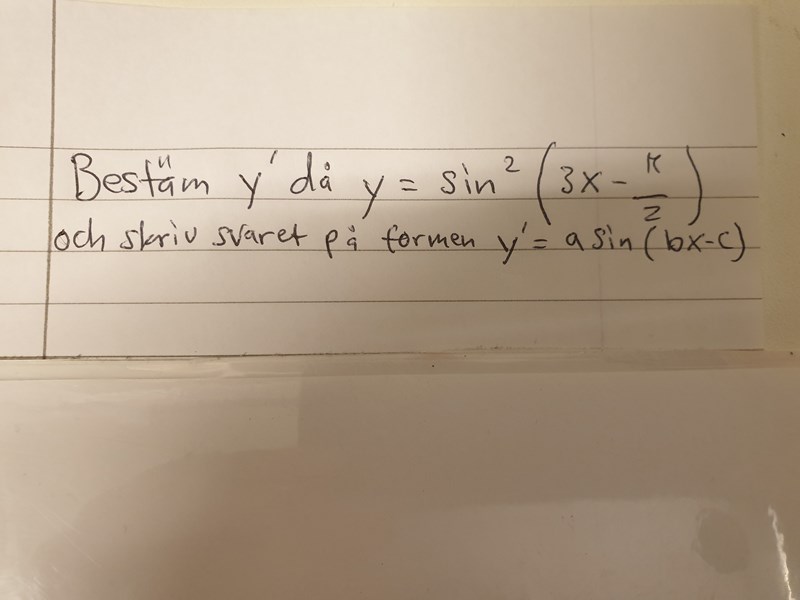 Bestäm y' då y = sin² (3x - π/2)
och skriv svaret på formen y' = a sin (bx-c)